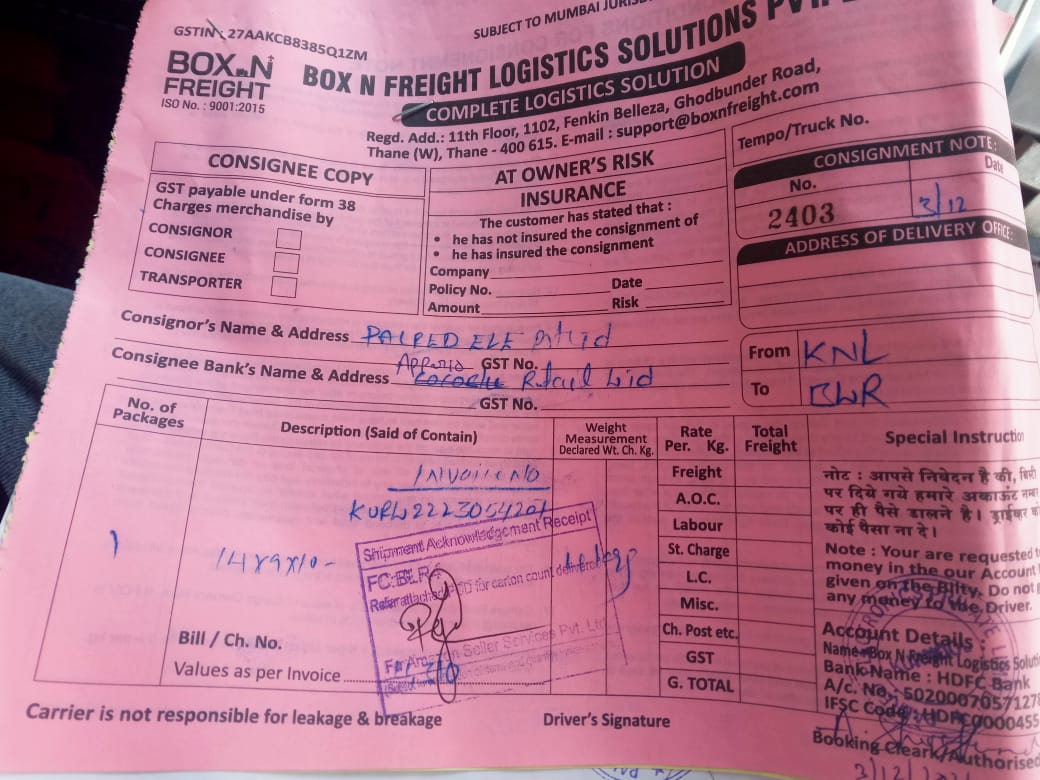 GSTIN : 27AAKCB8385Q1ZM
SUBJECT TO MUMBAI
BOX N FREIGHT
ISO No. : 9001:2015
BOX N FREIGHT LOGISTICS SOLUTIONS
COMPLETE LOGISTICS SOLUTION
Regd. Add.: 11th Floor, 1102, Fenkin Belleza, Ghodbunder Road,
Thane (W), Thane - 400 615. E-mail : support@boxnfreight.com
CONSIGNEE COPY
GST payable under form 38
Charges merchandise by
CONSIGNOR
CONSIGNEE
TRANSPORTER
AT OWNER'S RISK
INSURANCE
The customer has stated that :
• he has not insured the consignment of
• he has insured the consignment
Company
Policy No. Date
Amount Risk
Tempo/Truck No.
CONSIGNMENT NOTE:
No. Date
2403 3/12
ADDRESS OF DELIVERY OFFICE:
Consignor's Name & Address PALRED ELE
GST No.
Consignee Bank's Name & Address Retail Ltd
GST No.
From KNL
To BWR
No. of Packages
Description (Said of Contain)
Weight Measurement
Declared Wt. Ch. Kg.
Rate Per. Kg.
Total Freight
Special Instruction
1
Invoice No
14x9x10-
Shipment Acknowledgement Receipt
FC:BLR4
Refer attached POD for carton count delivered
For Amazon Seller Services Pvt. Ltd
Bill / Ch. No.
Values as per Invoice
Freight
A.O.C.
Labour
St. Charge
L.C.
Misc.
Ch. Post etc.
GST
G. TOTAL
नोट : आपसे निवेदन है की,
पर दिये गये हमारे अकाऊंट
पर ही पैसे डालने है।
कोई पैसा ना दे।
Note : Your are requested
money in the our Account
given on the Bilty. Do not
any money to the Driver.
Account Details :
Name: Box N Freight Logistics
Bank Name : HDFC Bank
A/c. No.
IFSC Code
Carrier is not responsible for leakage & breakage
Driver's Signature
Booking Cleark/Authorised
3/12/